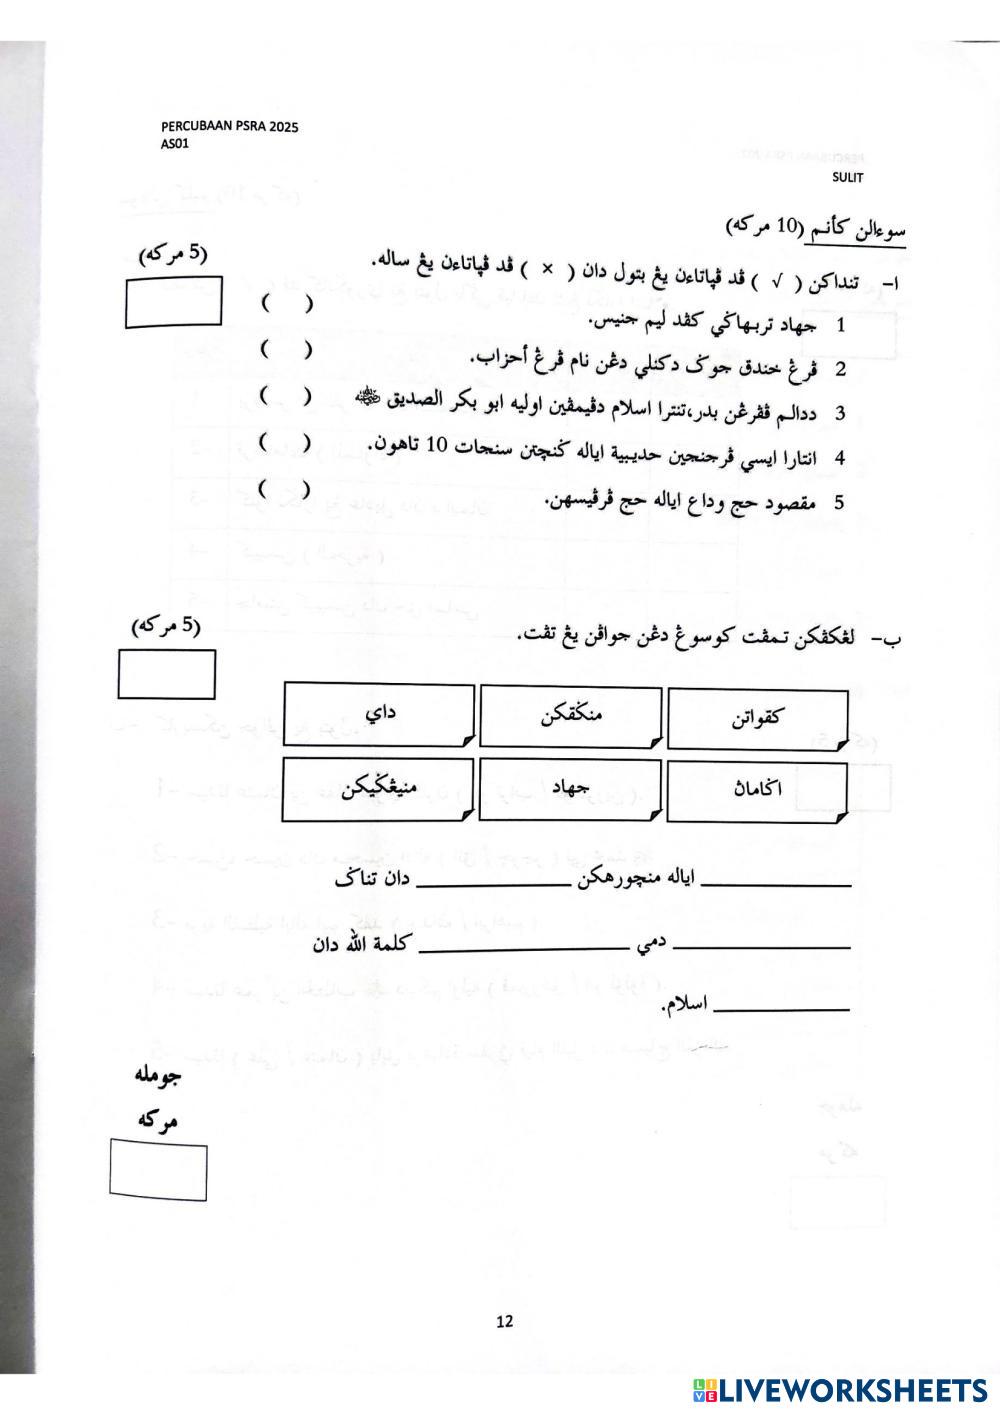 PERCUBAAN PSRA 2025
AS01
SULIT
سوءالن كأنم (10 مركه)
(5 مركه)
ا- تنداکن ( √ ) ڤد ڤپاتاءن يڠ بتول دان ( × ) ڤد ڤپاتاءن يڠ ساله.
1 جهاد تربهاڬي کڤد ليم جنيس. ( )
2 ڤرڠ خندق جوݢ دکنلي دڠن نام ڤرڠ أحزاب. ( )
3 ددالم ڤڤرڠن بدر،تنترا اسلام دڤيمڤين اوليه ابو بكر الصديق ( )
4 انتارا ايسي ڤرجنجين حديبية اياله ڬنچتن سنجات 10 تاهون. ( )
5 مقصود حج وداع اياله حج ڤرڤيسهن. ( )
(5 مركه)
ب- لڠکڤکن تمڤت کوسوڠ دڠن جواڤن يڠ تڤت.
کقواتن
منڬقکن
داي
اڬامان
جهاد
منيڠڬيکن
________ اياله منچورهکن ________ دان تناݢ
________ دمي ________ كلمة الله دان
________ اسلام.
جومله
مركه
12
LIVEWORKSHEETS